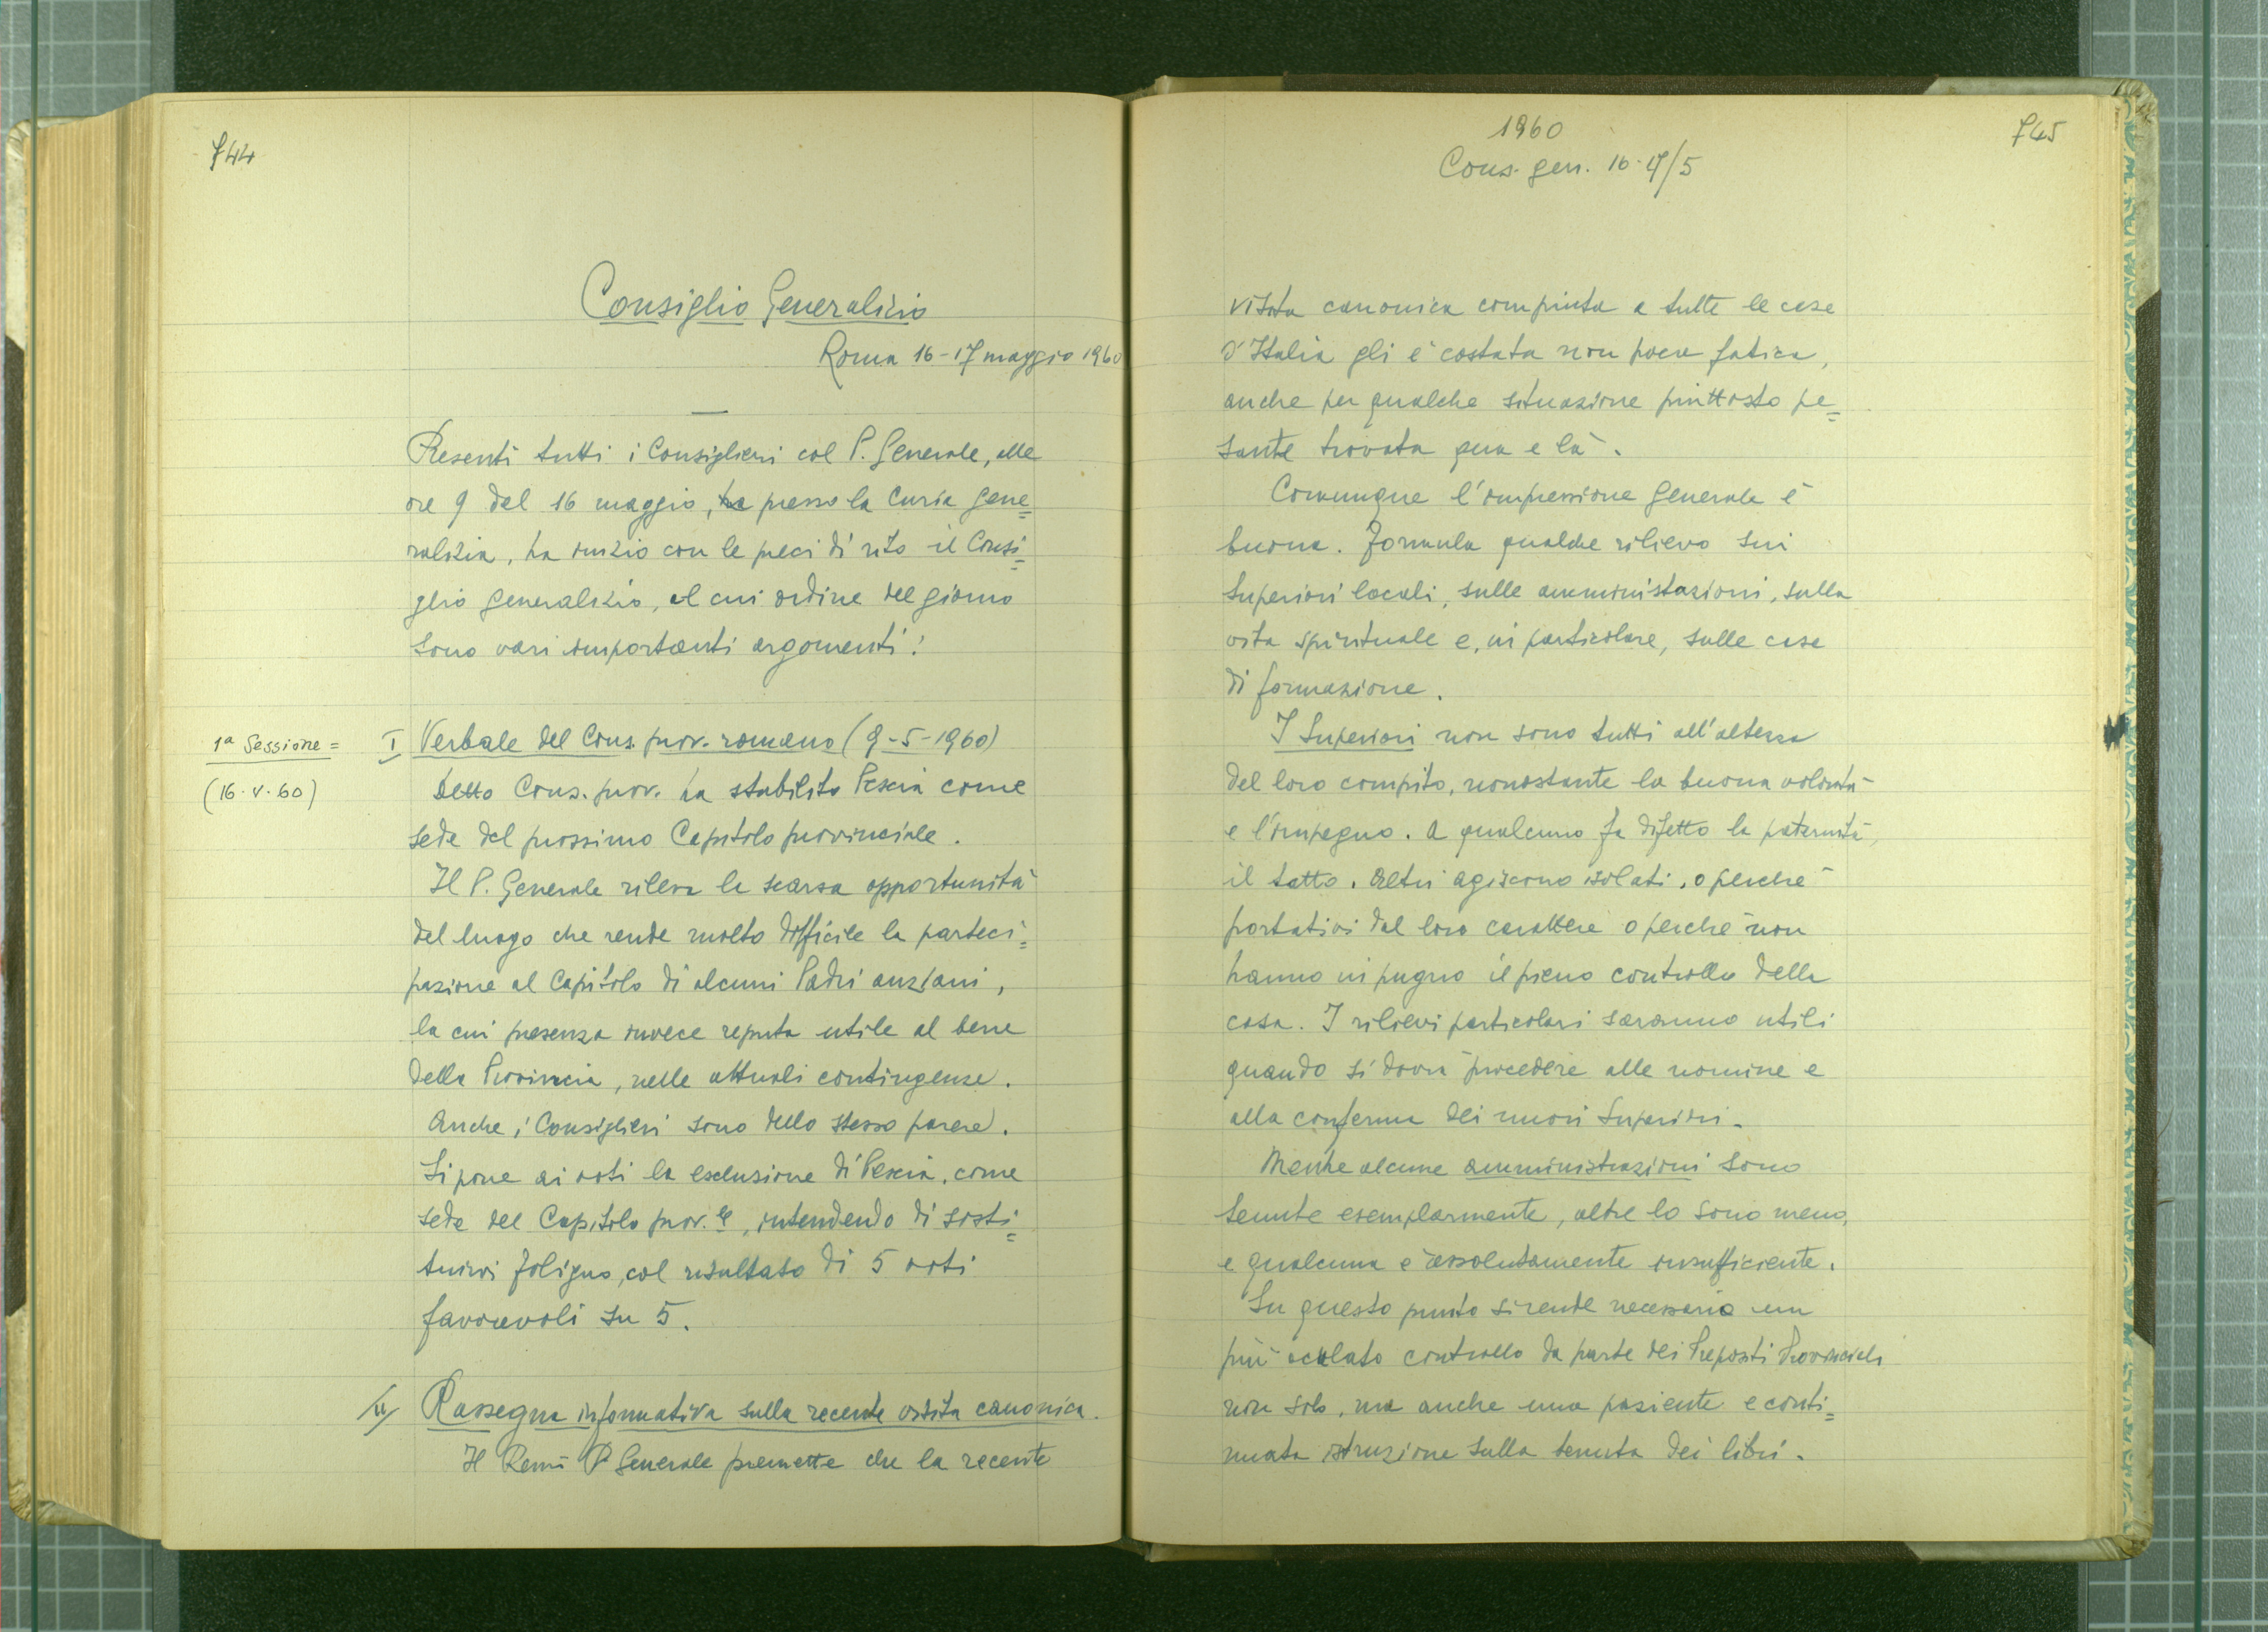 744
Consiglio Generalizio
Roma 16-17 maggio 1960
Presenti tutti i Consiglieri col P. Generale, alle
ore 9 del 16 maggio, ha presso la Curia gene=
ralizia, ha inizio con le preci di rito il Consi=
glio generalizio, al cui ordine del giorno
sono vari importanti argomenti:
1ª Sessione=
(16.V.60)
I Verbale del Cons. prov. romano (9-5-1960)
Detto Cons. prov. ha stabilito Pescia come
sede del prossimo Capitolo provinciale.
Il P. Generale rileva la scarsa opportunità
del luogo che rende molto difficile la parteci=
pazione al Capitolo di alcuni Padri anziani,
la cui presenza invece reputa utile al bene
della Provincia, nelle attuali contingenze.
Anche i Consiglieri sono dello stesso parere.
Si pone ai voti la esclusione di Pescia, come
sede del Capitolo prov.le, intendendo di sosti=
tuirvi Foligno, col risultato di 5 voti
favorevoli su 5.
II Rassegna informativa sulla recente visita canonica.
Il Rev.mo P. Generale premette che la recente
1960
Cons. gen. 16-17/5
745
visita canonica compiuta a tutte le case
d'Italia gli è costata non poca fatica,
anche per qualche situazione piuttosto pe=
sante trovata qua e là.
Comunque l'impressione generale è
buona. Formula qualche rilievo sui
Superiori locali, sulle amministrazioni, sulla
vita spirituale e, in particolare, sulle case
di formazione.
I Superiori non sono tutti all'altezza
del loro compito, nonostante la buona volontà
e l'impegno. A qualcuno fa difetto la paternità,
il tatto. Altri agiscono isolati, o perché
portativi dal loro carattere o perché non
hanno in pugno il pieno controllo della
casa. I rilievi particolari saranno utili
quando si dovrà procedere alle nomine e
alla conferma dei nuovi Superiori.
Mentre alcune amministrazioni sono
tenute esemplarmente, altre lo sono meno,
e qualcuna è assolutamente insufficiente.
Su questo punto si rende necessario un
più oculato controllo da parte dei Prepositi Provinciali
non solo, ma anche una paziente e conti=
nuata istruzione sulla tenuta dei libri.